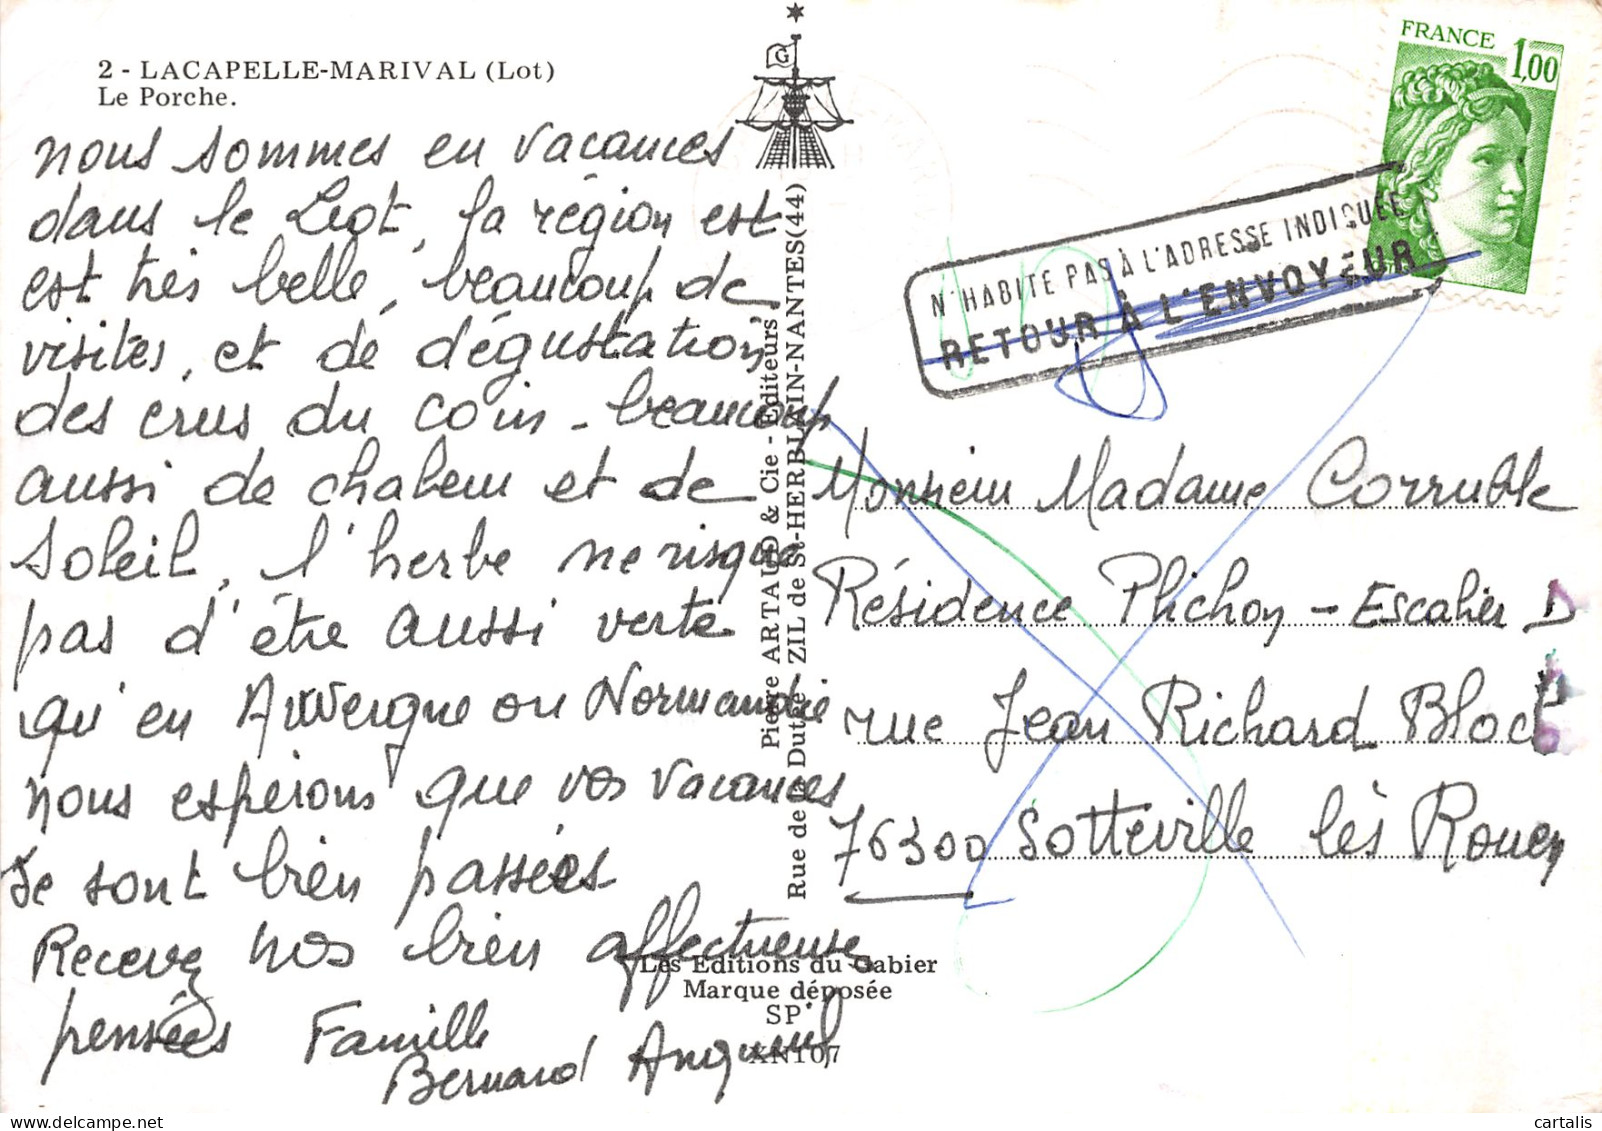 2 - LACAPELLE-MARIVAL (Lot)
Le Porche.
nous sommes en vacances
dans le Lot, la région est
est très belle, beaucoup de
visites, et de dégustation
des crus du coin - beaucoup
aussi de chaleur et de
Soleil, l'herbe ne risque
pas d'être aussi verte
qu'en Auvergne ou Normandie
nous espérons que vos vacances
se sont bien passées
Recevez nos bien affectueuse
pensées Famille
Bernard
G
Pierre ARTAUD & Cie - Editeurs
Rue de la Dutée ZIL de St-HERBLAIN-NANTES (44)
Les Editions du Gabier
Marque déposée
SP
XN107
FRANCE
1,00
N'HABITE PAS À L'ADRESSE INDIQUÉE
RETOUR À L'ENVOYEUR
Monsieur Madame Corruble
Résidence Plichon - Escalier D
rue Jean Richard Bloch
76300 Sotteville lès Rouen
cartalis